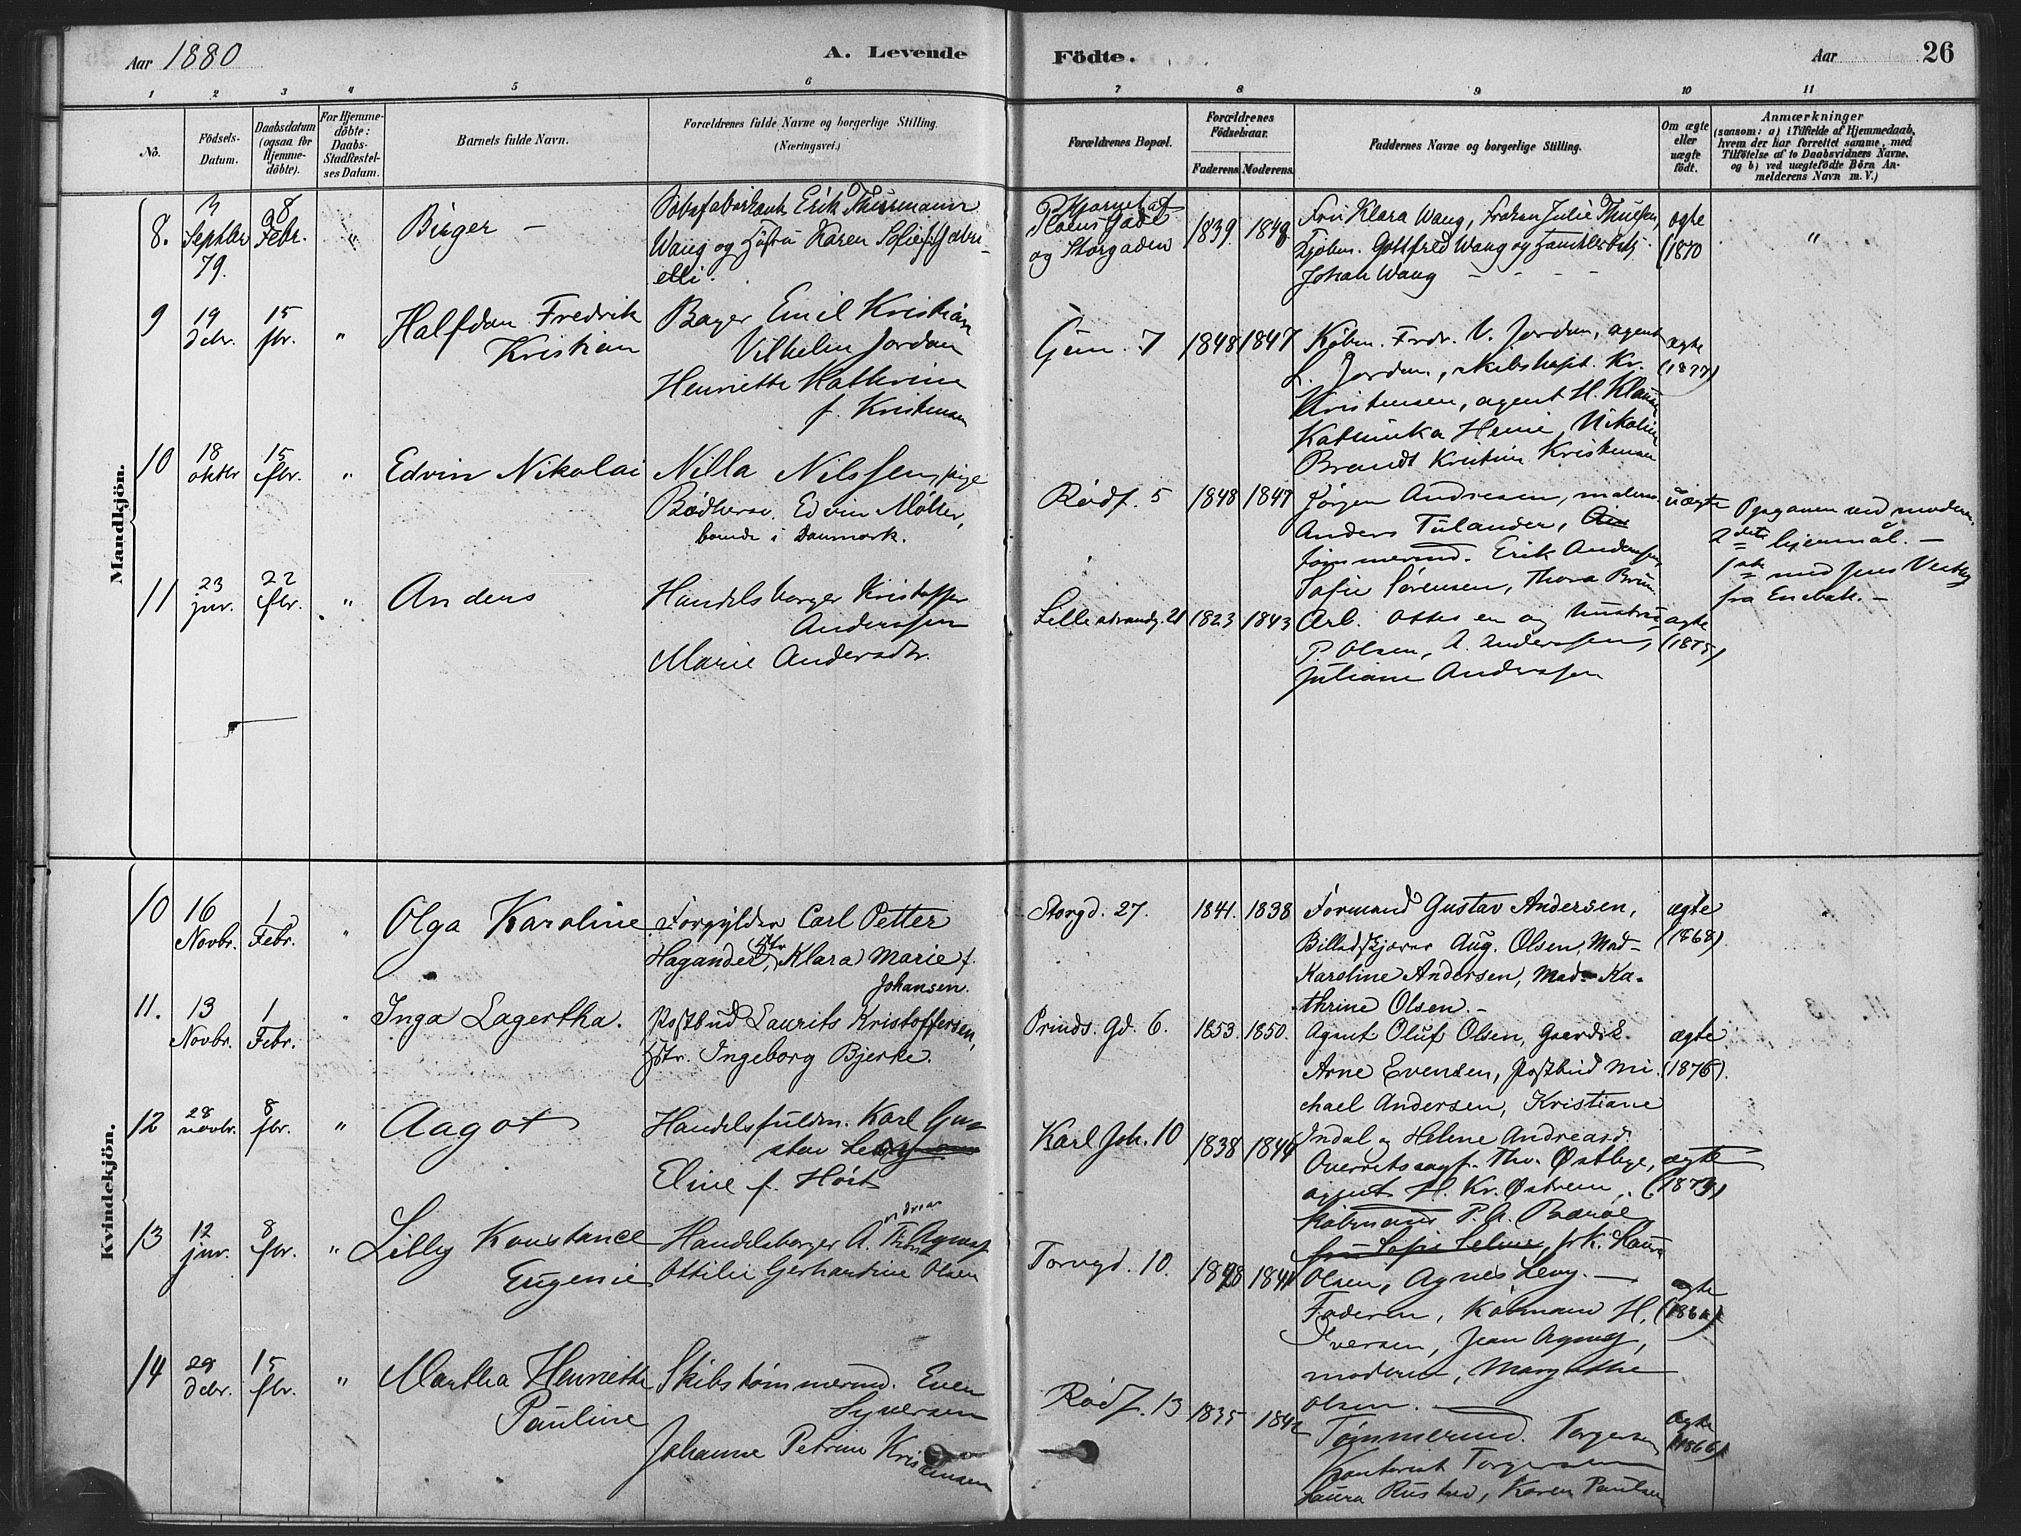 Aar 1880
A. Levende
Födte.
Aar
26
1 2 3 4 5 6 7 8 9 10 11
No.
Födsels-
Datum.
Daabsdatum
(ogsaa for
Hjemme-
döbte).
For Hjemme-
döbte:
Daabs-
Stadfæstel-
ses Datum.
Barnets fulde Navn.
Forældrenes fulde Navne og borgerlige Stilling.
(Næringsvei.)
Forældrenes Bopæl.
Forældrenes
Födselsaar.
Faderens. Moderens.
Faddernes Navne og borgerlige Stilling.
Om ægte
eller
uægte
födt.
Anmærkninger
(saasom: a) i Tilfælde af Hjemmedaab,
hvem der har forrettet samme, med
Tilföielse af to Daabsvidners Navne,
og b) ved uægtefödte Börn An-
melderens Navn m. V.)
Mandkjön.
8.
Septbr
79.
8
Febr.
"
Birger –
Erik Thurmann
Wang og Hustru Karen Sofie
elli.
og Storgaden
1839 1848
Fru Klara Wang, Frøken Julie
Kjøbm. Gottfred Wang og
Johan Wang – – – –
ægte
(1870
"
9
19
Debr.
15
fbr.
"
Halfdan Fredrik
Kristian
Bager Emil Kristian
Vilhelm Jordan
Henriette Kathrine
f. Kristensen
7
1848 1847
Købm. Fredr. V. Jordan, agent
L. Jordan, skibskapt. Kr.
Kristensen, agent H. Klausen
Katinka Heine, Nikoline
Brandt Kristine Kristensen
ægte
(1877)
10
18
oktbr
15
fbr.
"
Edvin Nikolai
Nilla Nilssen, pige
Bødkersv. Edvin Møller,
boende i Danmark.
Rødf. 5
1848 1847
Jørgen Andresen, maler
Anders Tulander,
tømmermd. Erik Anderssen,
Sofie Sørensen, Thora Brun
uægte
Opgaven ved moderen.
2det lejermål. –
1ste med Jens
fra Enebak. –
11
23
jnr.
22
fbr.
"
Anders
Handelsborger Kristoffer
Anderssen
Marie Andersdtr.
Lille strandg. 21
1823 1843
Arb. Ottesen og hustru
P. Olsen, A. Anderssen,
Juliane Anderssen
ægte
(1875)
Kvindekjön.
10
16
Novbr.
1
Febr.
"
Olga Karoline
Forgylder Carl Petter
Hagander, Hstr Klara Marie f.
Johansen.
Storgd. 27.
1841. 1838
Formand Gustav Andersen,
Billedskjærer Aug. Olsen, Mad-
Karoline Andersen, Mad- Ka-
thrine Olsen. –
ægte
(1868)
"
11.
13
Novbr.
1
Febr.
"
Inga Lagertha.
Postbud Laurits Kristoffersen,
Hstr. Ingeborg Bjerke.
Prinds. Gd. 6.
1853. 1850.
Agent Oluf Olsen, Gaardsk.
Arne Evensen, Postbud Mi-
chael Andersen, Kristiane
Indal og Helene Andreasd.
ægte
(1876).
12
28
novbr.
8
fbr.
"
Aagot
Handelsfuldm. Karl Gus-
stav
Eline f. Høst
Karl Joh. 10
1838 1844
Overretssagf. Thv. Østbye,
agent H. Kr. Østrem,
købmand P. A.
fru Sofie Selmer, frk. Laura
Olsen, Agnes Levy. –
ægte
(1873)
13
12
jnr.
8
fbr.
"
Lilly Konstance
Eugenie
Handelsborger A.
Ottilie Gerhardine Olsen
Torvgd. 10.
1848 1841
Faderen, Købmand H.
Iversen, Jean
moderen, Margrethe
Olsen. –
ægte
14
29
Debr.
15
fbr.
"
Martha Henriette
Pauline
Skibstømmermd. Even
Syversen
Johanne Petrine Kristensen
Rødf. 13
1835 1842
Tømmermd. Torgersen
Kontorist Torgersen
Laura Rustad, Karen Paulsen
ægte
(1866)